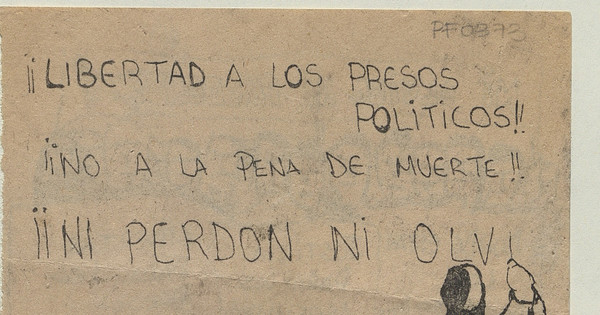 PF0873
¡¡LIBERTAD A LOS PRESOS
POLITICOS!!
¡¡NO A LA PENA DE MUERTE!!
¡¡NI PERDON NI OLVI